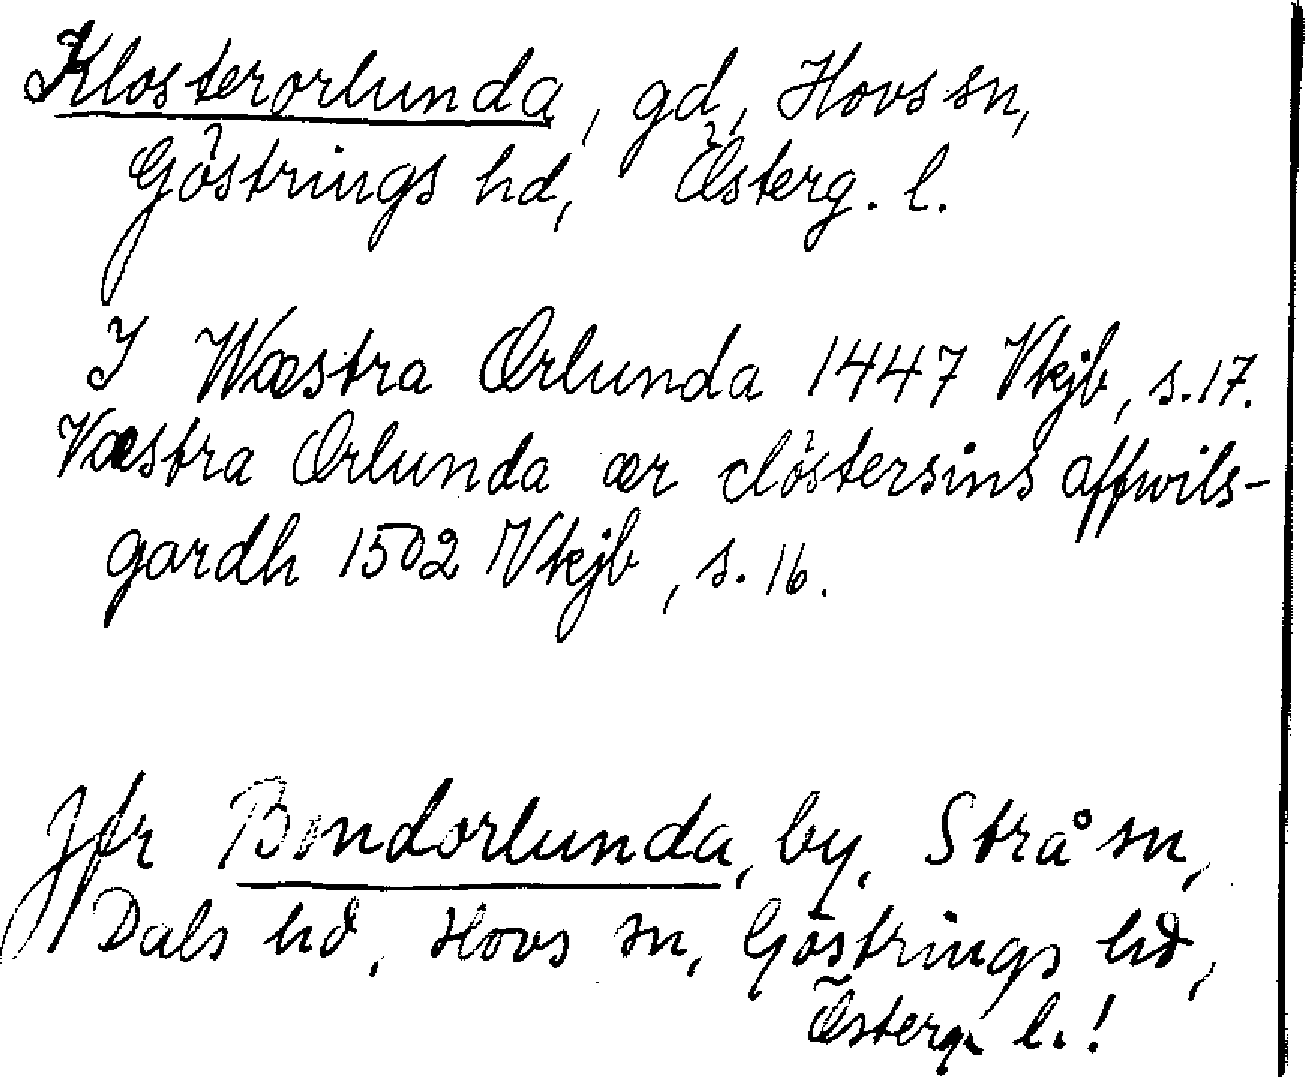 Klosterorlunda, gd, Hovs sn,
Göstrings hd, Österg. l.
I Wæstra Orlunda 1447 Vkjb, s. 17.
Væstra Orlunda ær clöstersins affwils-
gardh 1502 Vkjb, s. 16.
Jfr Bondorlunda, by, Strå sn,
Dals hd, Hovs sn, Göstrings hd,
Österg. l.!